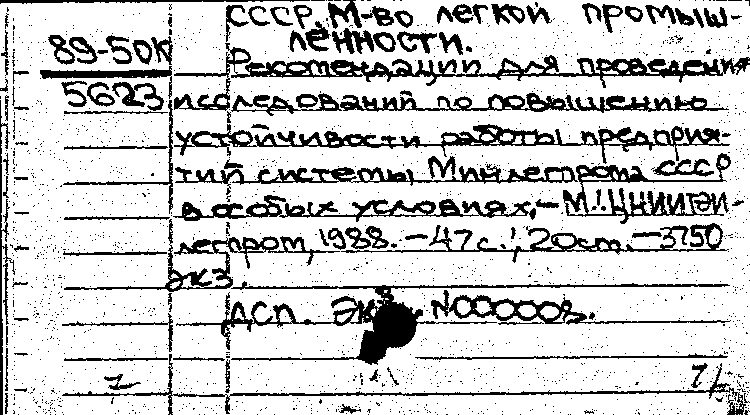 СССР. М-во легкой промыш-
89-50к
ленности.
Рекомендации для проведения
5623
исследований по повышению
устойчивости работы предприя-
тий системы Минлегпрома СССР
в особых условиях, - М.: ЦНИИТЭИ-
легпром, 1988. - 47 с.; 20 см. - 3750
экз.
ДСП. Экз. N000008.